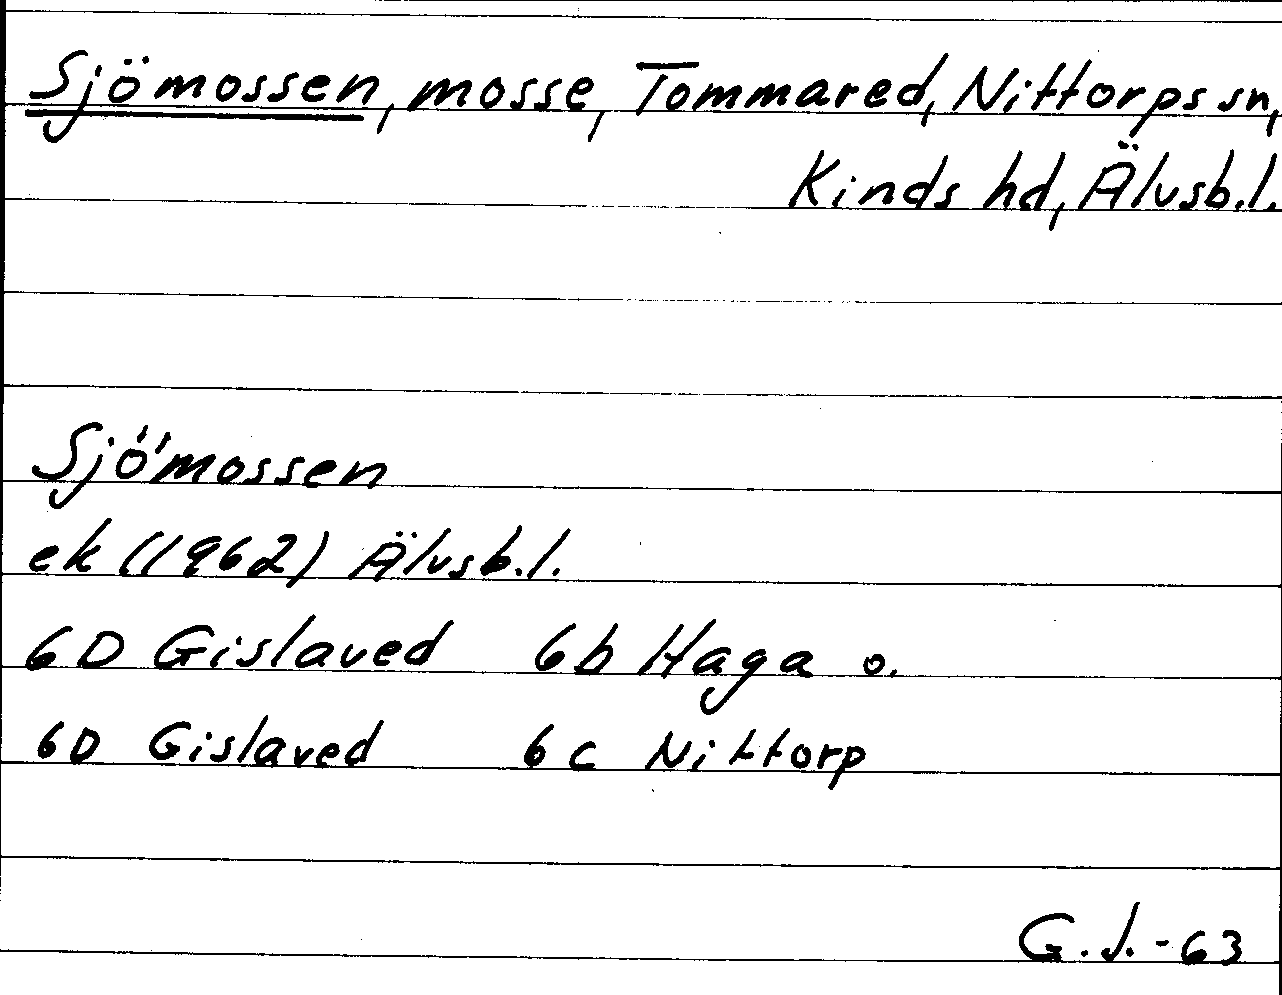 Sjömossen, mosse, Tommared, Nittorps sn,
Kinds hd, Älvsb.l.
Sjömossen
ek (1962) Älvsb.l.
6D Gislaved 6b Haga o.
6D Gislaved 6c Nittorp
G.J.-63